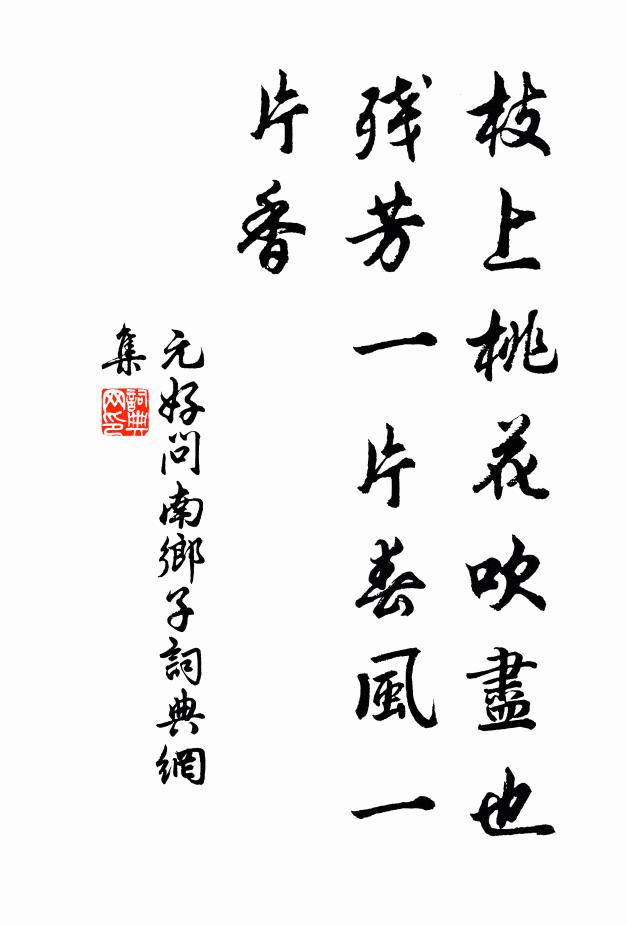 枝上桃花吹盡也
残芳一片春風一
片香
元好问南鄉子詞典網
集
詞典
网印